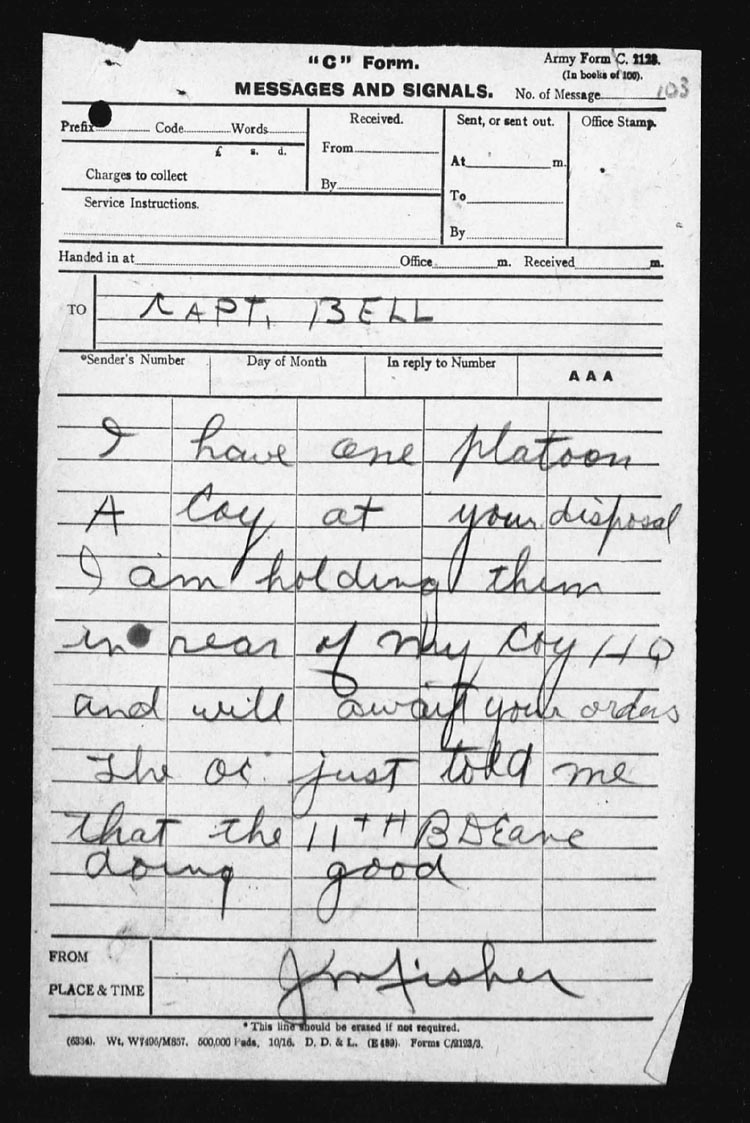 "C" Form.
Army Form C. 2123.
(In books of 100).
MESSAGES AND SIGNALS.
No. of Message 103
Prefix Code Words
£ s. d.
Charges to collect
Service Instructions.
Received.
From
By
Sent, or sent out.
At m.
To
By
Office Stamp.
Handed in at Office m. Received m.
TO CAPT. BELL
*Sender's Number Day of Month In reply to Number AAA
I have one platoon
A Coy at your disposal
I am holding them
in rear of my Coy HQ
and will await your orders
The OC just told me
that the 11TH BDE are
doing good
FROM
PLACE & TIME
J M Fisher
* This line should be erased if not required.
(6334). Wt. W7496/M857. 500,000 Pads. 10/16. D. D. & L. (E 489). Forms C/2123/3.